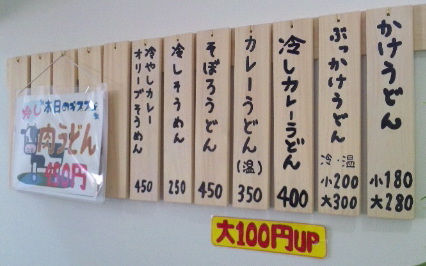 かけうどん
小180
大280
ぶっかけうどん
冷・温
小200
大300
冷しカレーうどん
400
カレーうどん
(温)
350
そぼろうどん
450
冷しそうめん
250
冷やしカレー
オリーブそうめん
450
本日のオススメ
冷し
肉うどん
大100円UP